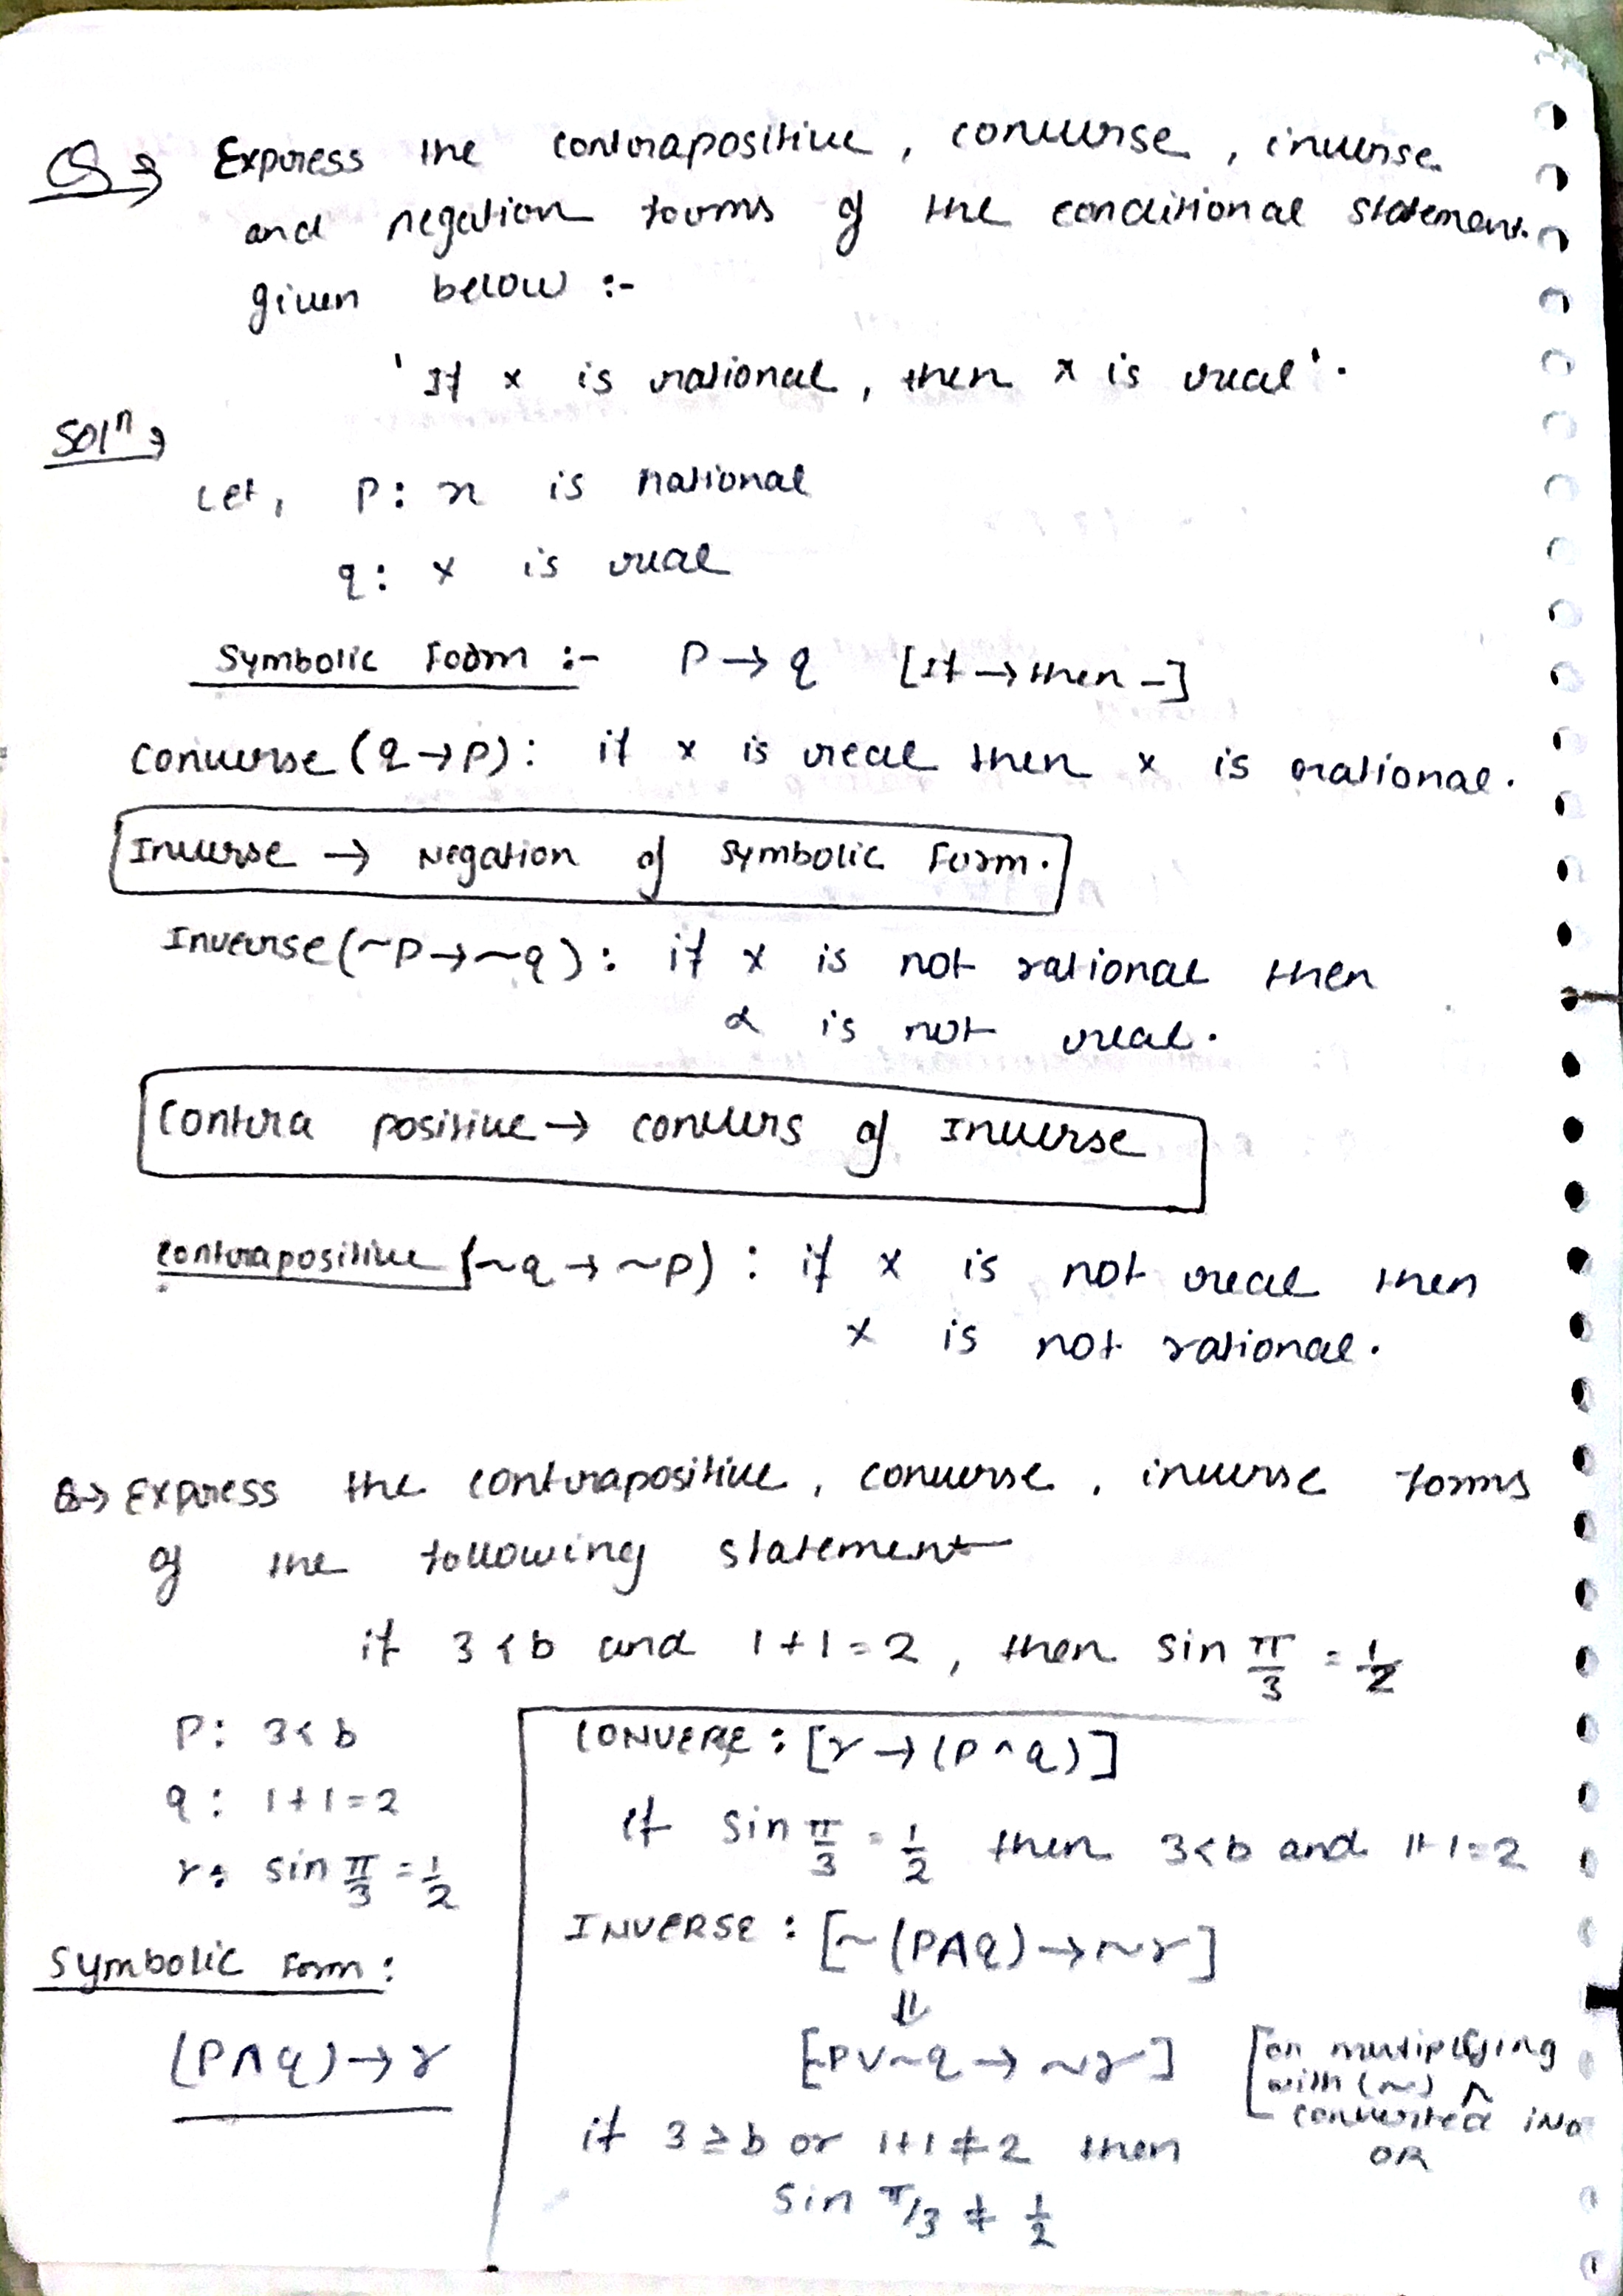 Q → Express the contrapositive, converse, inverse
and negation forms of the conditional statement
given below :-
'If x is rational, then x is real'.
Solⁿ →
Let, P: x is rational
q: x is real
Symbolic Form :- P → q [If → then -]
Converse (q → P): if x is real then x is rational.
Inverse → Negation of Symbolic Form.
Inverse (~P → ~q): if x is not rational then
x is not real.
Contra positive → convers of Inverse
Contrapositive (~q → ~p): if x is not real then
x is not rational.
Q → Express the contrapositive, converse, inverse forms
of the following statement
if 3 < b and 1+1=2, then sin π/3 = 1/2
P: 3 < b
q: 1+1=2
r: sin π/3 = 1/2
Symbolic Form:
(P ∧ q) → r
CONVERE: [r → (P ∧ q)]
if sin π/3 = 1/2 then 3 < b and 1+1=2
INVERSE: [~(P ∧ q) → ~r]
⇓
[~P ∨ ~q → ~r]
[on multiplying
with (~) ∧
converted into
OR
if 3 ≥ b or 1+1 ≠ 2 then
sin π/3 ≠ 1/2